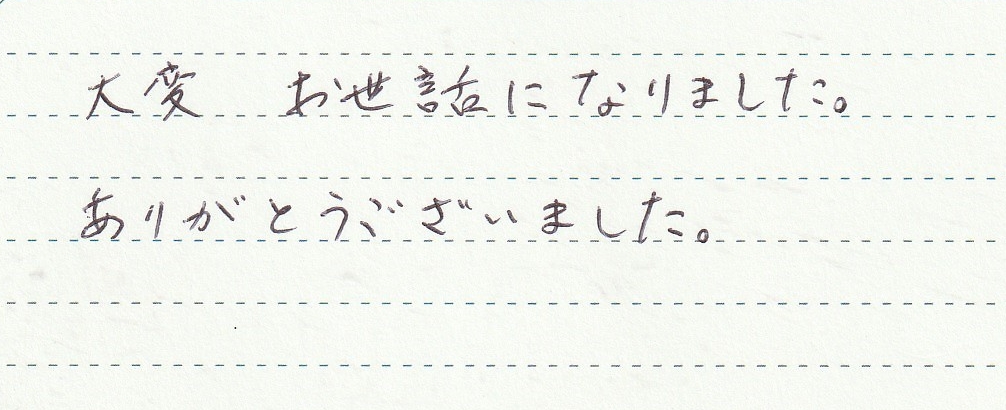 大変　お世話になりました。
ありがとうございました。